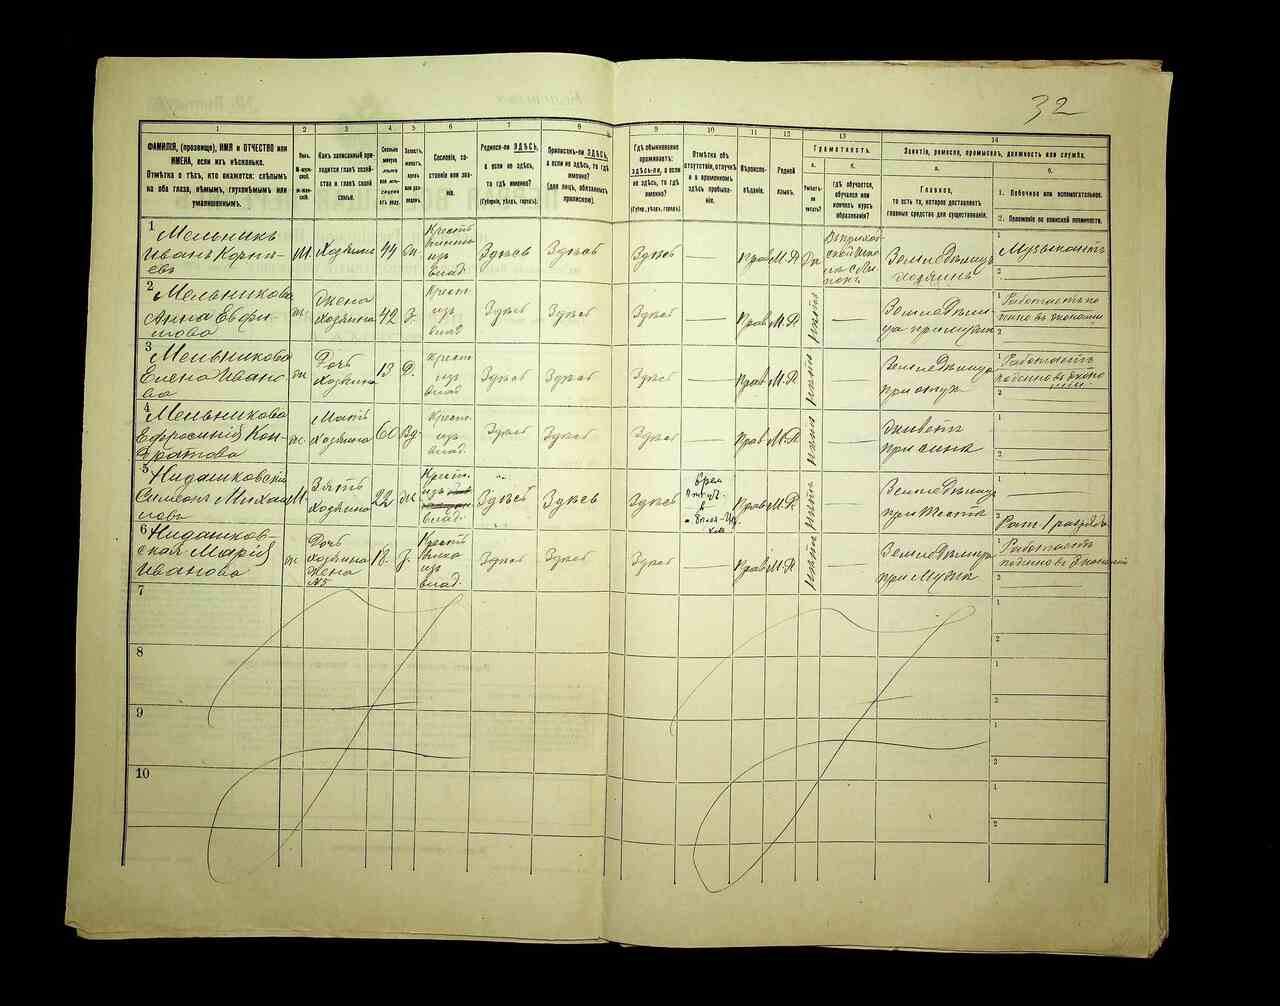 32
1 2 3 4 5 6 7 8
9 10 11 12 13 14
ФАМИЛІЯ, (прозвище), ИМЯ и ОТЧЕСТВО или
ИМЕНА, если ихъ нѣсколько.
Отмѣтка о тѣхъ, кто окажется: слѣпымъ
на оба глаза, нѣмымъ, глухонѣмымъ или
умалишеннымъ.
Полъ.
М-мужской.
Ж-женскій.
Какъ записанный при-
ходится главѣ хозяй-
ства и главѣ своей
семьи.
Сколько
минуло
лѣтъ
или мѣся-
цевъ
отъ роду.
Холостъ,
женатъ,
вдовъ
или раз-
веденъ.
Сословіе, со-
стояніе или зва-
ніе.
Родился-ли ЗДѢСЬ,
а если не здѣсь,
то гдѣ именно?
(Губернія, уѣздъ, городъ).
Приписанъ-ли ЗДѢСЬ,
а если не здѣсь, то гдѣ
именно?
(для лицъ, обязанныхъ
припиской).
Гдѣ обыкновенно
проживаетъ:
здѣсь-ли, а если
не здѣсь, то гдѣ
именно?
(Губер., уѣздъ, городъ).
Отмѣтка объ
отсутствіи, отлучкѣ
и о временномъ
здѣсь пребыва-
ніи.
Вѣроиспо-
вѣданіе.
Родной
языкъ.
Грамотность.
а.
Умѣетъ-
ли
читать?
б.
гдѣ обучается,
обучался или
кончилъ курсъ
образованія?
Занятіе, ремесло, промыселъ, должность или служба.
а.
Главное,
то есть то, которое доставляетъ
главныя средства для существованія.
б.
1. Побочное или вспомогательное.
2. Положеніе по воинской повинности.
1 Мельникъ
Иванъ Корни-
евъ
М. Хозяинъ 44 Ж.
Крестъ
янинъ
изъ
влад.
Здѣсь Здѣсь Здѣсь — Прав М.Р.
Да
Земледѣлецъ
хозяинъ
1 Музыкантъ
2
2 Мельникова
Анна Евфи-
мова
Ж.
Жена
Хозяина
42 З.
Крест.
изъ
влад
Здѣсь Здѣсь Здѣсь — Прав М.Р.
нѣтъ
при мужѣ
1
2
3 Мельникова
Елена Ивано
ва
Ж
Дочь
Хозяина
13 Д.
Крест
изъ
влад.
Здѣсь Здѣсь Здѣсь — Прав М.Р.
нѣтъ
при отцѣ
1 Работаетъ
2
4 Мельникова
Ефросинія Кон-
дратова
Ж.
Мать
Хозяина
60 Вд.
Крест.
изъ
влад.
Здѣсь Здѣсь Здѣсь — Прав М.Р.
нѣтъ
живетъ
при сынѣ
1
2
5 Нидашковскій
Симеонъ Михаи
ловъ
М.
Зять
Хозяина
22 Ж
Крест.
изъ
влад.
Здѣсь Здѣсь Здѣсь
Прав М.Р.
нѣтъ
Земледѣлецъ
при тестѣ
1 —
2 Рат 1 разряда
6 Нидашков-
ская Марія
Иванова
Ж
Дочь
Хозяина
Жена
№5
18. З.
Крестъ
янка
изъ
влад.
Здѣсь Здѣсь Здѣсь — Прав М.Р.
нѣтъ
при Мужѣ
1 Работаетъ
2
7
1
2
8
1
2
9
1
2
10
1
2